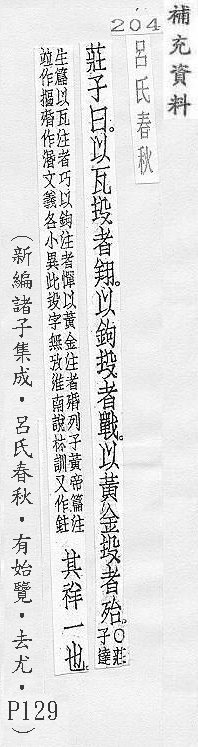 補充資料
204
呂氏春秋
莊子曰。以瓦投者翔。以鉤投者戰。以黃金投者殆。○莊子達
生篇以瓦注者巧以鉤注者憚以黃金注者殙列子黃帝篇注
竝作摳殙作涽文義各小異此投字無攷淮南說林訓又作鉒
其祥一也。
(新編諸子集成・呂氏春秋・有始覽・去尤・P129)